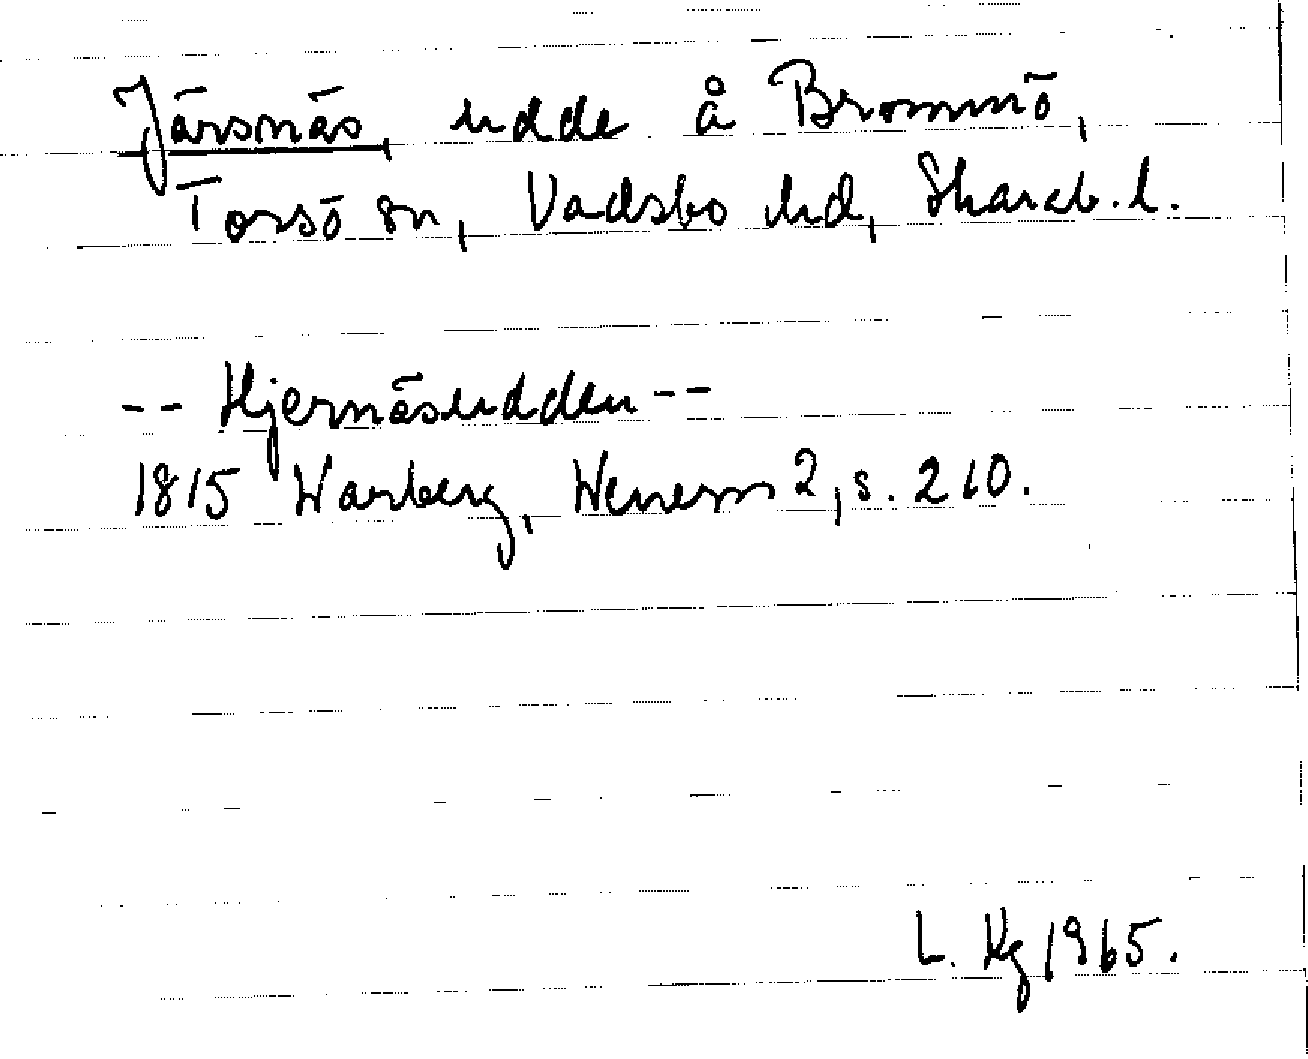 Järsnäs, udde å Brommö,
Torsö sn, Vadsbo hd, Skarab. l.
-- Hjernäsudden --
1815 Warberg, Wenern 2, s. 210.
L. Kg 1965.